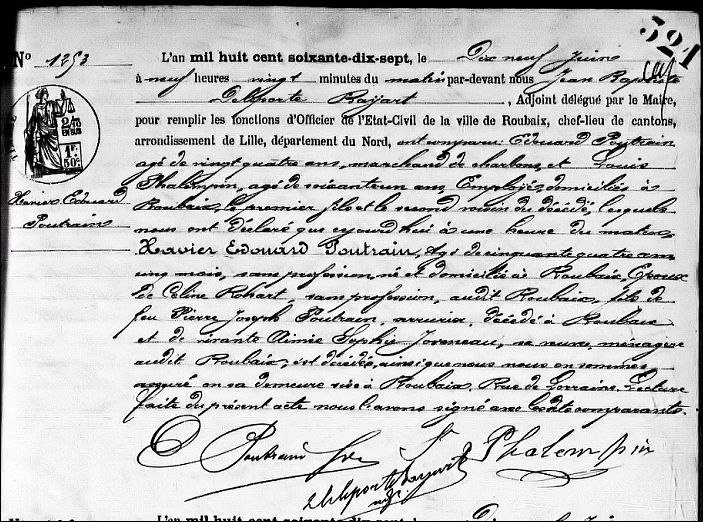 521
N° 1253
L'an mil huit cent soixante-dix-sept, le Dix neuf Juin
à neuf heures vingt minutes du matin par-devant nous Jean Baptiste
Delporte Bayart, Adjoint délégué par le Maire,
pour remplir les fonctions d'Officier de l'Etat-Civil de la ville de Roubaix, chef-lieu de cantons,
arrondissement de Lille, département du Nord, ont comparu: Edouard Poutrain
agé de vingt quatre ans, marchand de charbons, et Louis
Phalempin, agé de soixante un ans, Employé, domiciliés à
Roubaix, le premier fils et le second voisin du décédé, lesquels
nous ont déclaré que ce jourd'hui à une heure du matin
Xavier Edouard Poutrain, Agé de cinquante quatre ans
cinq mois, sans profession, né et domicilié à Roubaix, Epoux
de Céline Rohart, sans profession, audit Roubaix, fils de
feu Pierre Joseph Poutrain, décédé à Roubaix
et de vivante Aimée Sophie sa veuve, ménagère
audit Roubaix, est décédé, ainsi que nous nous en sommes
assuré en sa demeure sise à Roubaix, Rue de Lorraine. Lecture
faite du présent acte nous l'avons signé avec les dits comparants.
Xavier Edouard
Poutrain
2/10
EN SUS
1F
50c
E Poutrain fils L. Phalempin
Delporte Bayart
adj
L'an mil huit cent soixante-dix-sept, le Dix neuf Juin